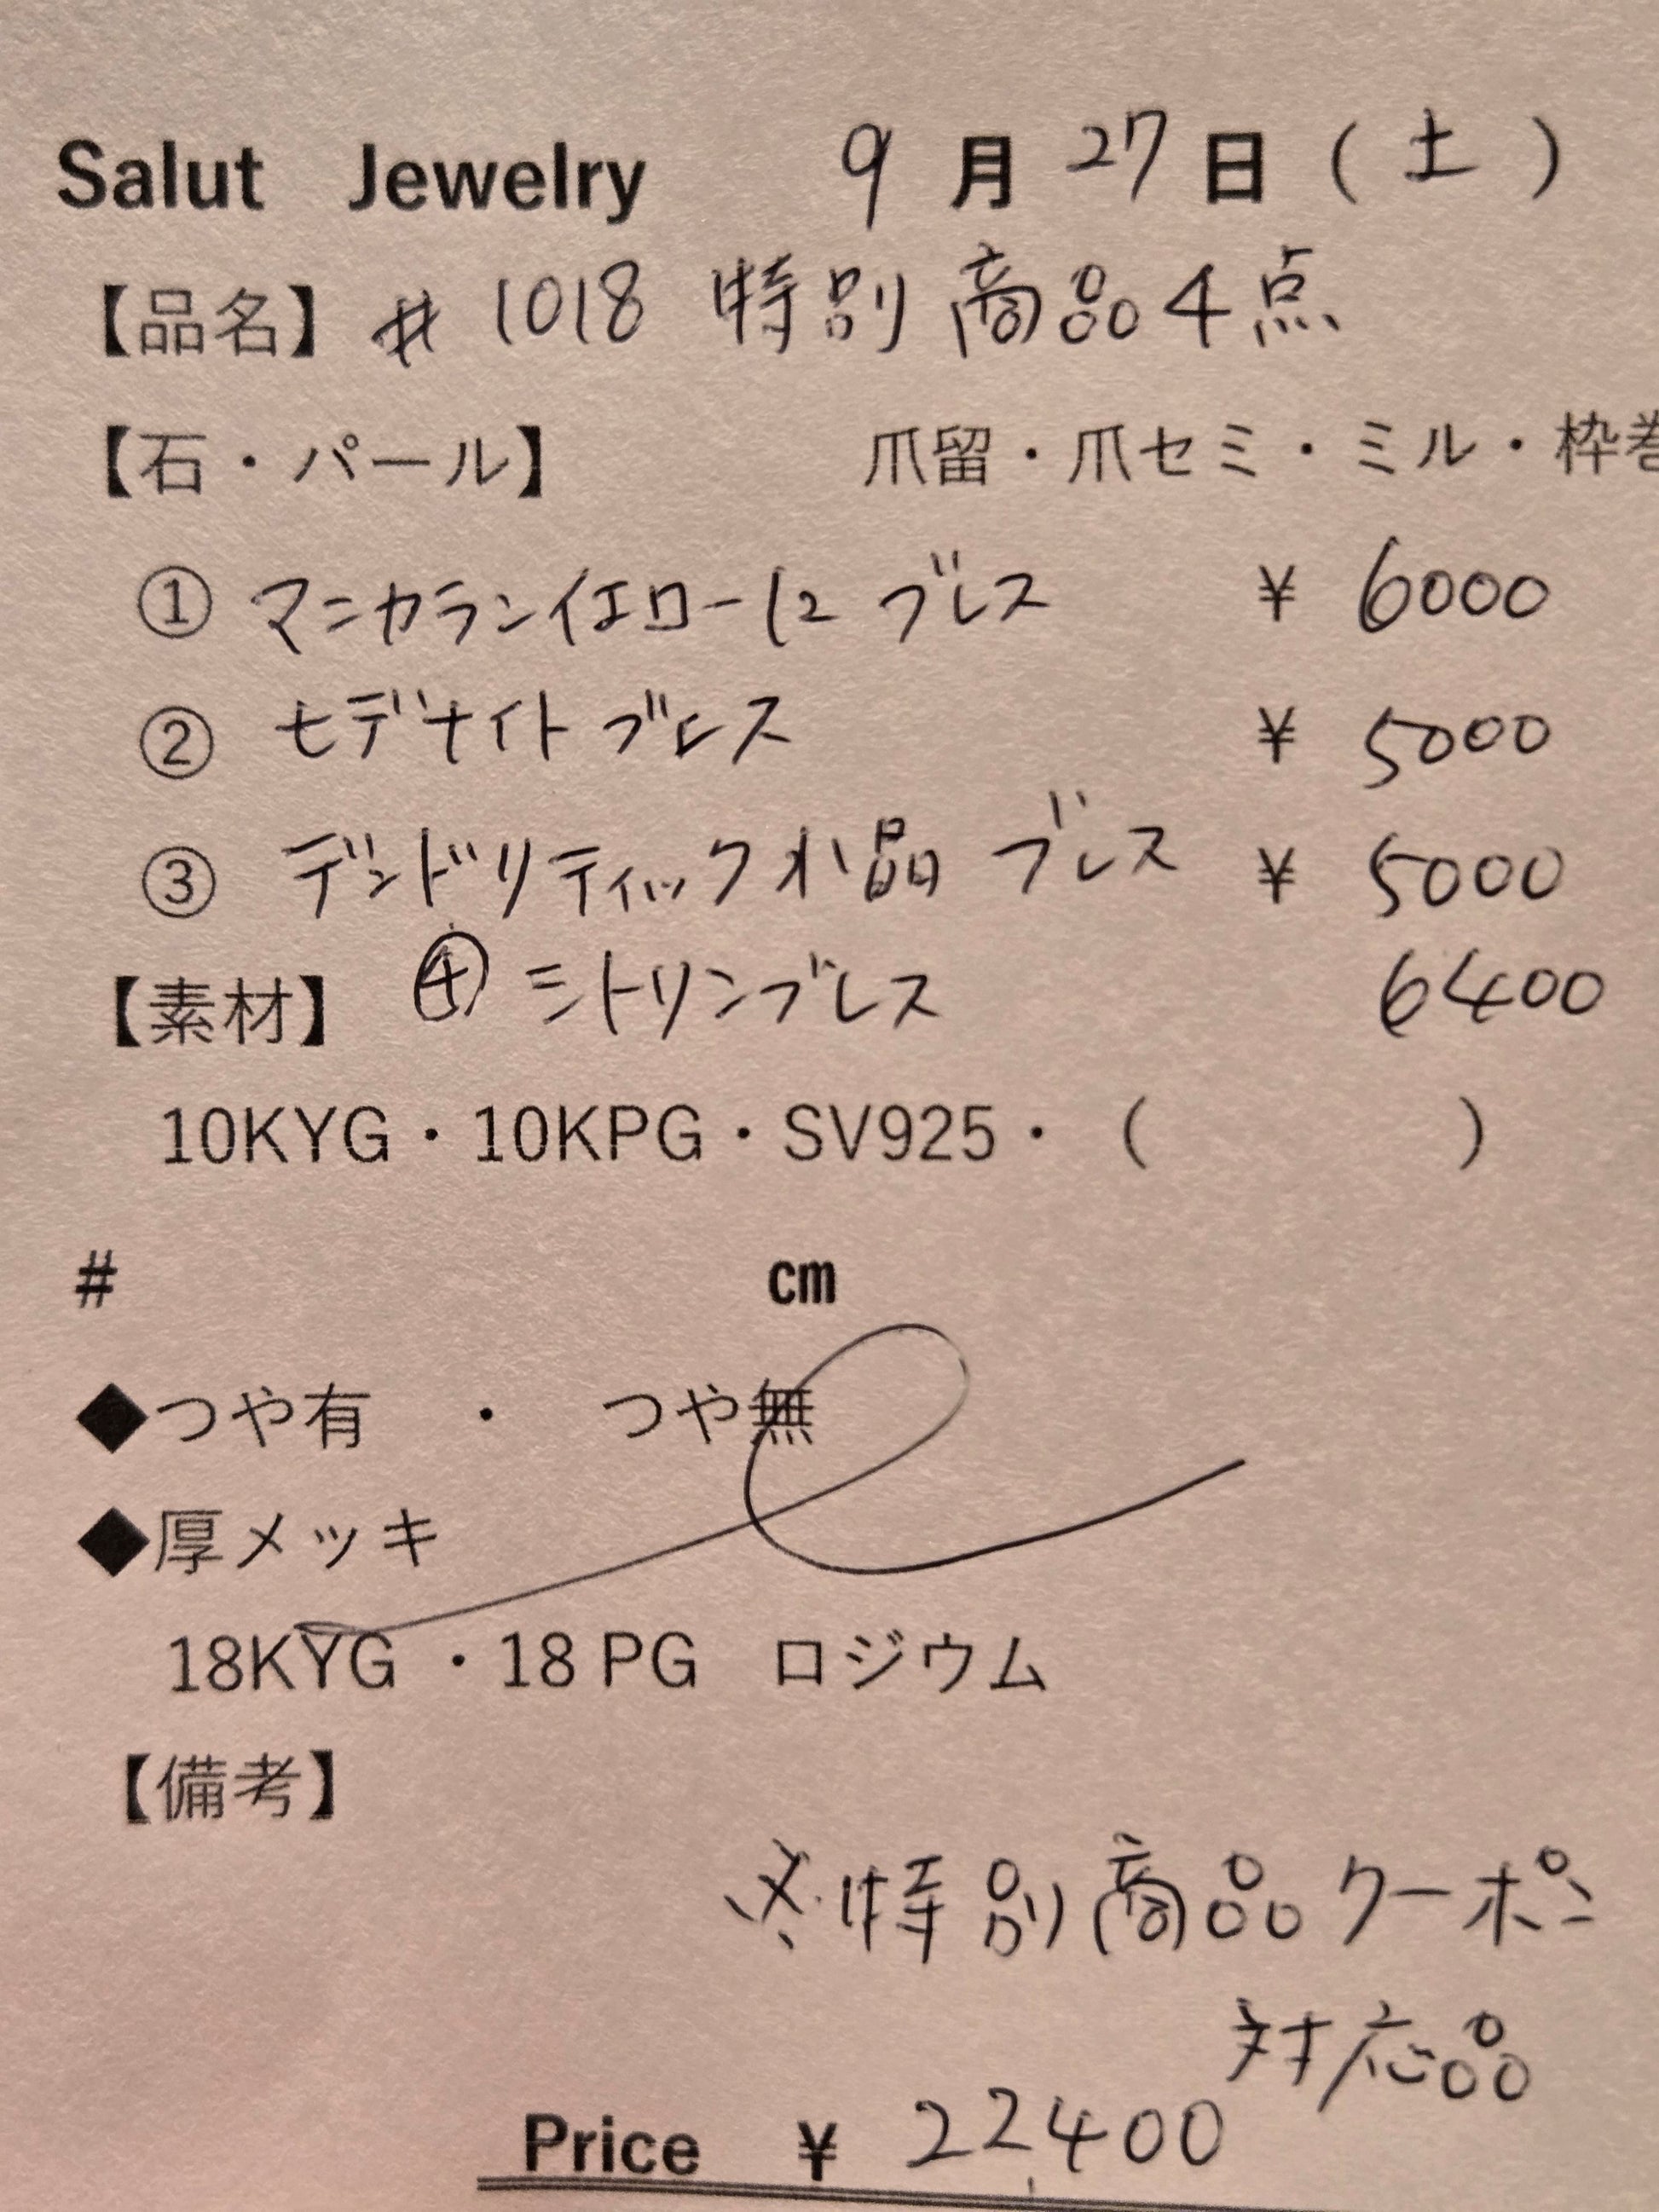 Salut Jewelry 9月27日(土)
【品名】# 1018 特別商品4点
【石・パール】 爪留・爪セミ・ミル・枠巻
① マニカランイエロー12 ブレス ¥ 6000
② セデナイトブレス ¥ 5000
③ デンドリティック水晶 ブレス ¥ 5000
【素材】 ④ シトリンブレス 6400
10KYG・10KPG・SV925・( )
# cm
◆つや有 ・ つや無
◆厚メッキ
18KYG ・18 PG ロジウム
【備考】
※特別商品クーポン
対応品
Price ¥ 22400